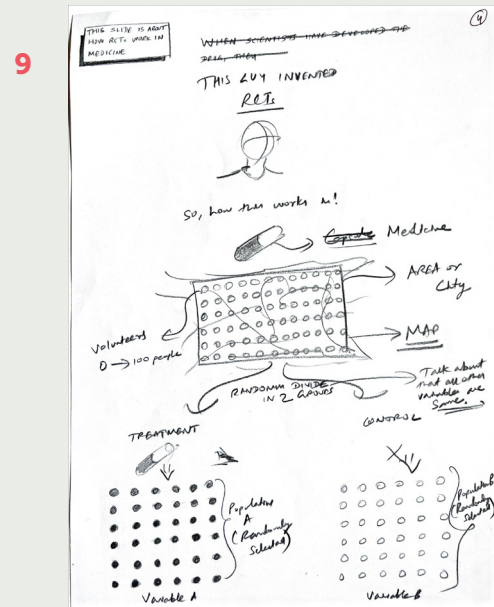 9
4
THIS SLIDE IS ABOUT
HOW RCTs WORK IN
MEDICINE
WHEN SCIENTISTS HAVE DEVELOPED THE
DRUG, THEY
THIS GUY INVENTED
RCTs
So, how this works is!
Capsule Medicine
AREA or
City
Volunteers
O → 100 people
MAP
RANDOMM DIVIDE
IN 2 GROUPS
Talk about
that all other
variables are
Same.
TREATMENT
CONTROL
Population
A
(Randomly
Selected)
Population B
(Randomly
Selected)
Variable A
Variable B